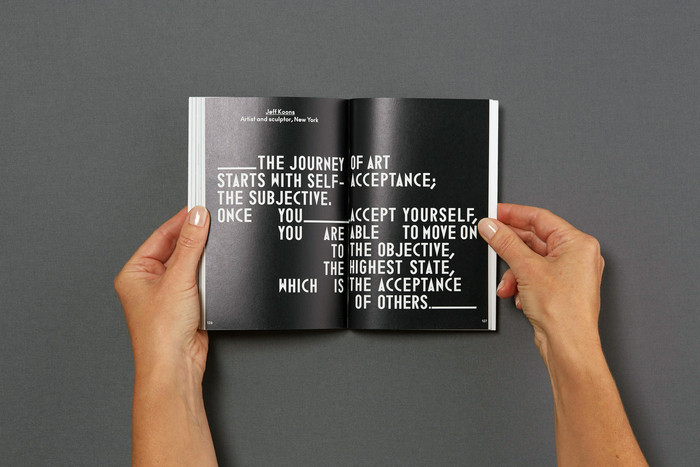 Jeff Koons
Artist and sculptor, New York
THE JOURNEY OF ART
STARTS WITH SELF-ACCEPTANCE;
THE SUBJECTIVE.
ONCE YOU ACCEPT YOURSELF,
YOU ARE ABLE TO MOVE ON
TO THE OBJECTIVE,
THE HIGHEST STATE,
WHICH IS THE ACCEPTANCE
OF OTHERS.